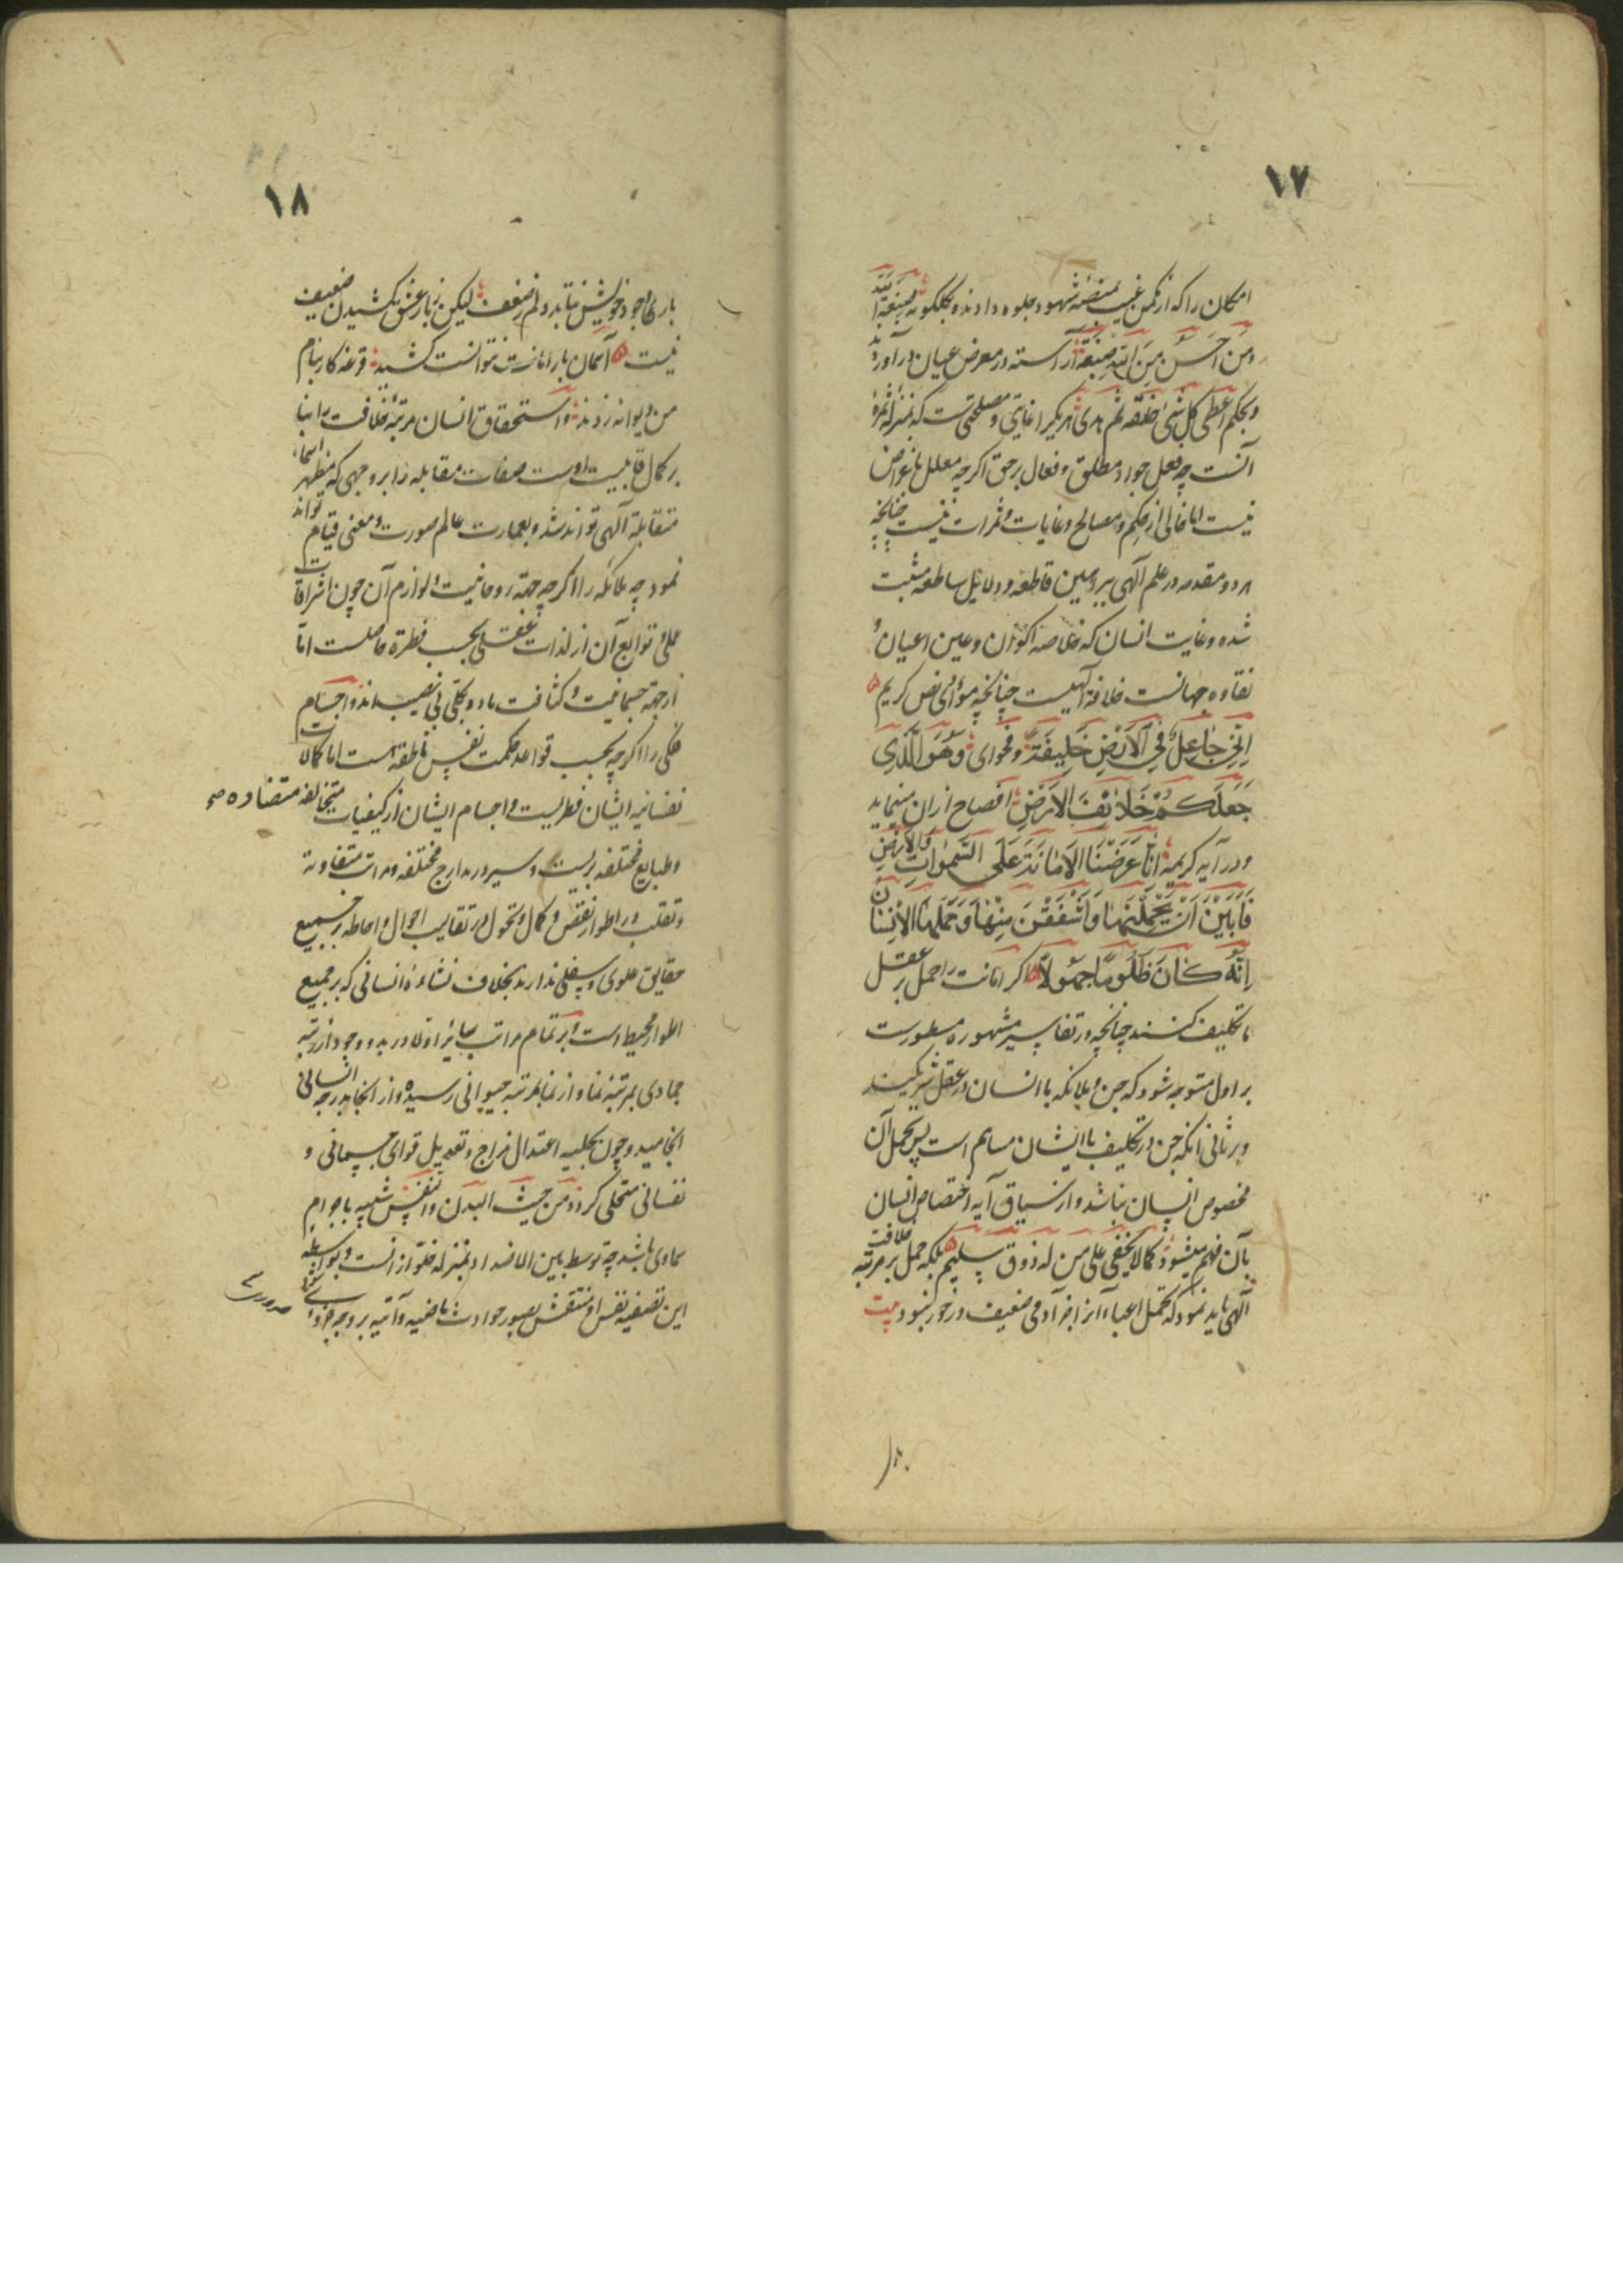 ١٧
امکان را که از مکمن غیب بمنصّهٔ شهود جلوه دادند و بگلگونه صبغة الله
ومن احسن من الله صبغة آراسته در معرض عیان درآورد
و بحکم اعطی کل شیٔ خلقه ثم هدی هر یکی را غایتی و مصلحتی است که بمنزله ثمرهٔ
آنست چه فعل جواد مطلق و فعال برحق اگرچه معلل باغراض
نیست اما خالی از حکم و مصالح و غایات و ثمرات نیست چنانچه
هر دو مقدمه در علم آلهی ببراهین قاطعه و دلایل ساطعه مثبت
شده و غایت انسان که خلاصه اکوان و عین اعیان و
نقاوه جهانست خلافة آلهیست چنانچه مؤدّای نص کریم
اِنِّی جَاعِلٌ فِی الْاَرْضِ خَلِیفَةً و فحوای وَهُوَ الَّذِی
جَعَلَکُمْ خَلَائِفَ الاَرْضِ افصاح از ان مینماید
و در آیه کریمه اِنَّا عَرَضْنَا الْاَمَانَةَ عَلَی السَّمٰوَاتِ وَالْاَرْضِ
فَاَبَیْنَ اَنْ یَحْمِلْنَهَا وَاَشْفَقْنَ مِنْهَا وَحَمَلَهَا الْاِنْسَانُ
اِنَّهُ کَانَ ظَلُومًا جَهُولًا اگر امانت را حمل بر عقل
یا تکلیف کنند چنانچه در تفاسیر مشهوره مسطورست
بر اول متوجه شود که جن و ملائکه با انسان در عقل شریکند
و بر ثانی آنکه جن در تکلیف با ایشان مساهم است پس تحمل آن
مخصوص انسان نباشد و از سیاق آیه اختصاص انسان
بآن فهم میشود کما لا یخفی علی من له ذوق سلیم بلکه حمل بر مرتبه خلافت
آلهی باید نمود که تحمل اعباء آنرا جز آدمی ضعیف در خور نبود بیت
١٨
بار وجود خویش نتابد دلم ز ضعف لیکن ز بار عشق کشیدن ضعیف
نیست آسمان بار امانت نتوانست کشید قرعه کار بنام
من دیوانه زدند و استحقاق انسان مرتبهٔ خلافت را بنا
بر کمال قابلیت اوست صفات متقابله را بر وجهی که مظهر اسماء
متقابلهٔ آلهی تواند شد و بعمارت عالم صورت و معنی قیام تواند
نمود چه ملائکه را اگرچه جهة روحانیت و لوازم آن چون اشراقات
علمی و توابع آن از لذات عقلی بحسب فطرة حاصلست امّا
از جهة جسمانیت و کثافت مادّه بکلّی بی نصیب اند و اجسام
فلکی را اگرچه بحسب قواعد حکمت نفس ناطقه است اما کمالات
نفسانیه ایشان فطریست و اجسام ایشان از کیفیات متخالفه متضاده صح
و طبایع مختلفه بریست و سیر در مدارج مختلفه و مراتب متفاوته
و تقلب در اطوار نقص و کمال و تحول در تقالیب احوال و احاطه بر جمیع
حقایق علوی و سفلی ندارند بخلاف نشاءهٔ انسانی که بر جمیع
اطوار محیط است و بر تمام مراتب سایر اولا در بدو وجود از رتبه
جمادی بمرتبه نما و از نما بمرتبه حیوانی رسیده و از انجا بدرجه انسانی
انجامید و چون بحلیه اعتدال مزاج و تعدیل قوای جسمانی و
نفسانی متحلی کردد من حیث البدن و النفس شبیه باجرام
سماوی باشد چه توسط بین الاضداد بمنزله خلو از انست و بواسطه
این تصفیه نفس او منتقش بصور حوادث ماضیه و آتیه بر وجه جزوی